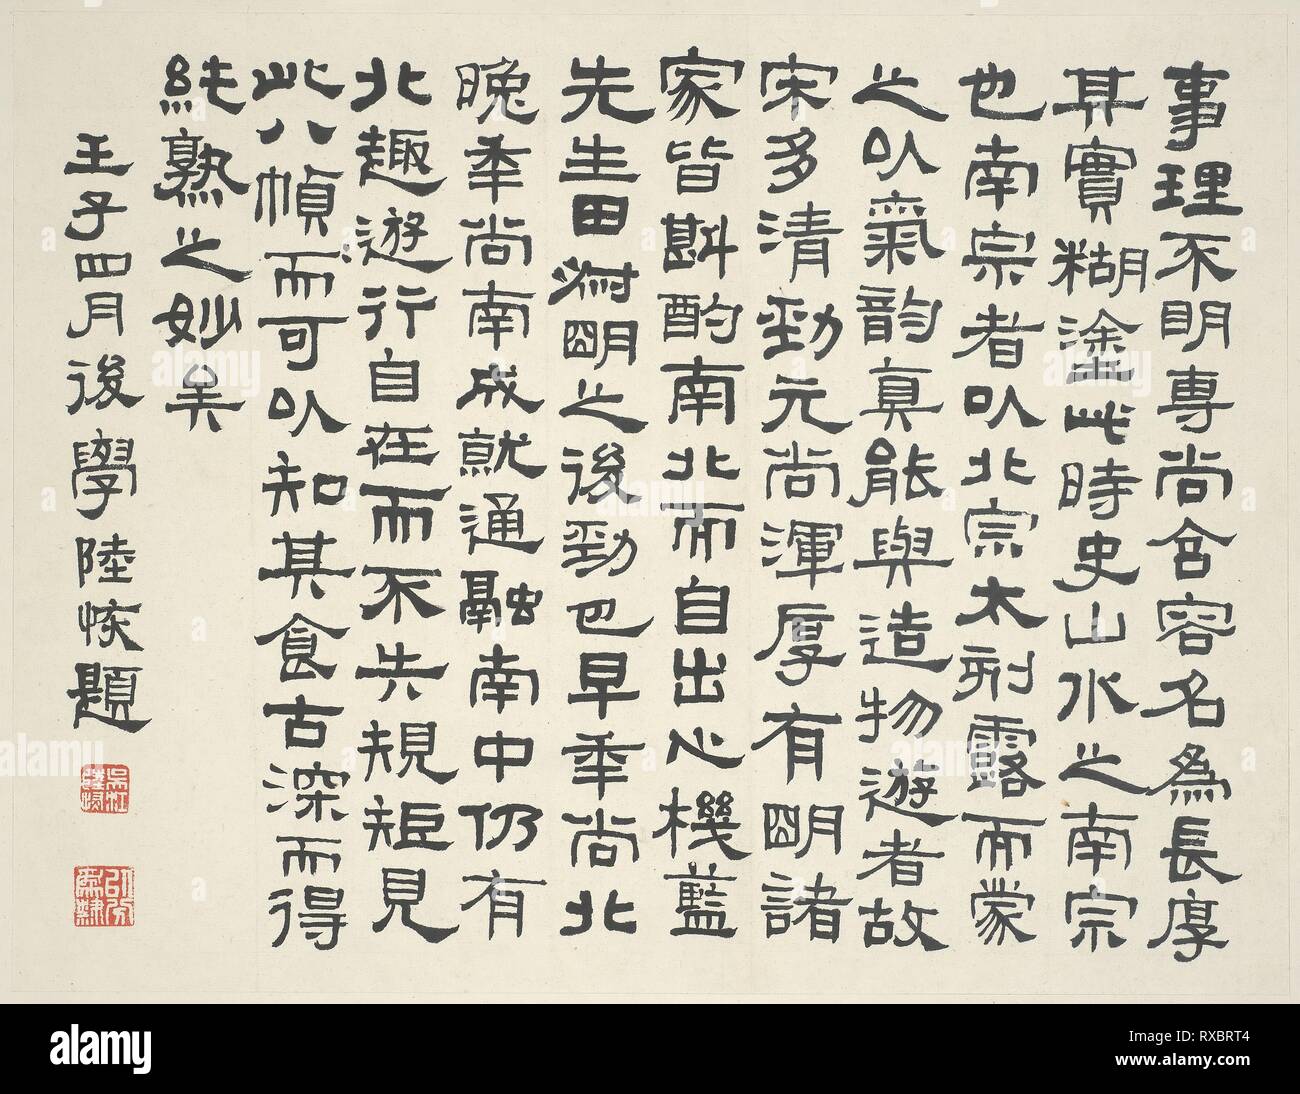 事理不明專尚含容名為長厚
其實糊塗此時史山水之南宗
也南宗者以北宗太刻露而蒙
之以氣韵真能與造物遊者故
宋多清勁元尚渾厚有明諸
家皆斟酌南北而自出心機藍
先生田叔明之後勁也早年尚北
晚年尚南成就通融南中仍有
北趣遊行自在而不失規矩見
此八幀而可以知其食古深而得
純熟之妙矣
壬子四月後學陸恢題
吳江陸恢
alamy
Image ID: RXBRT4
www.alamy.com